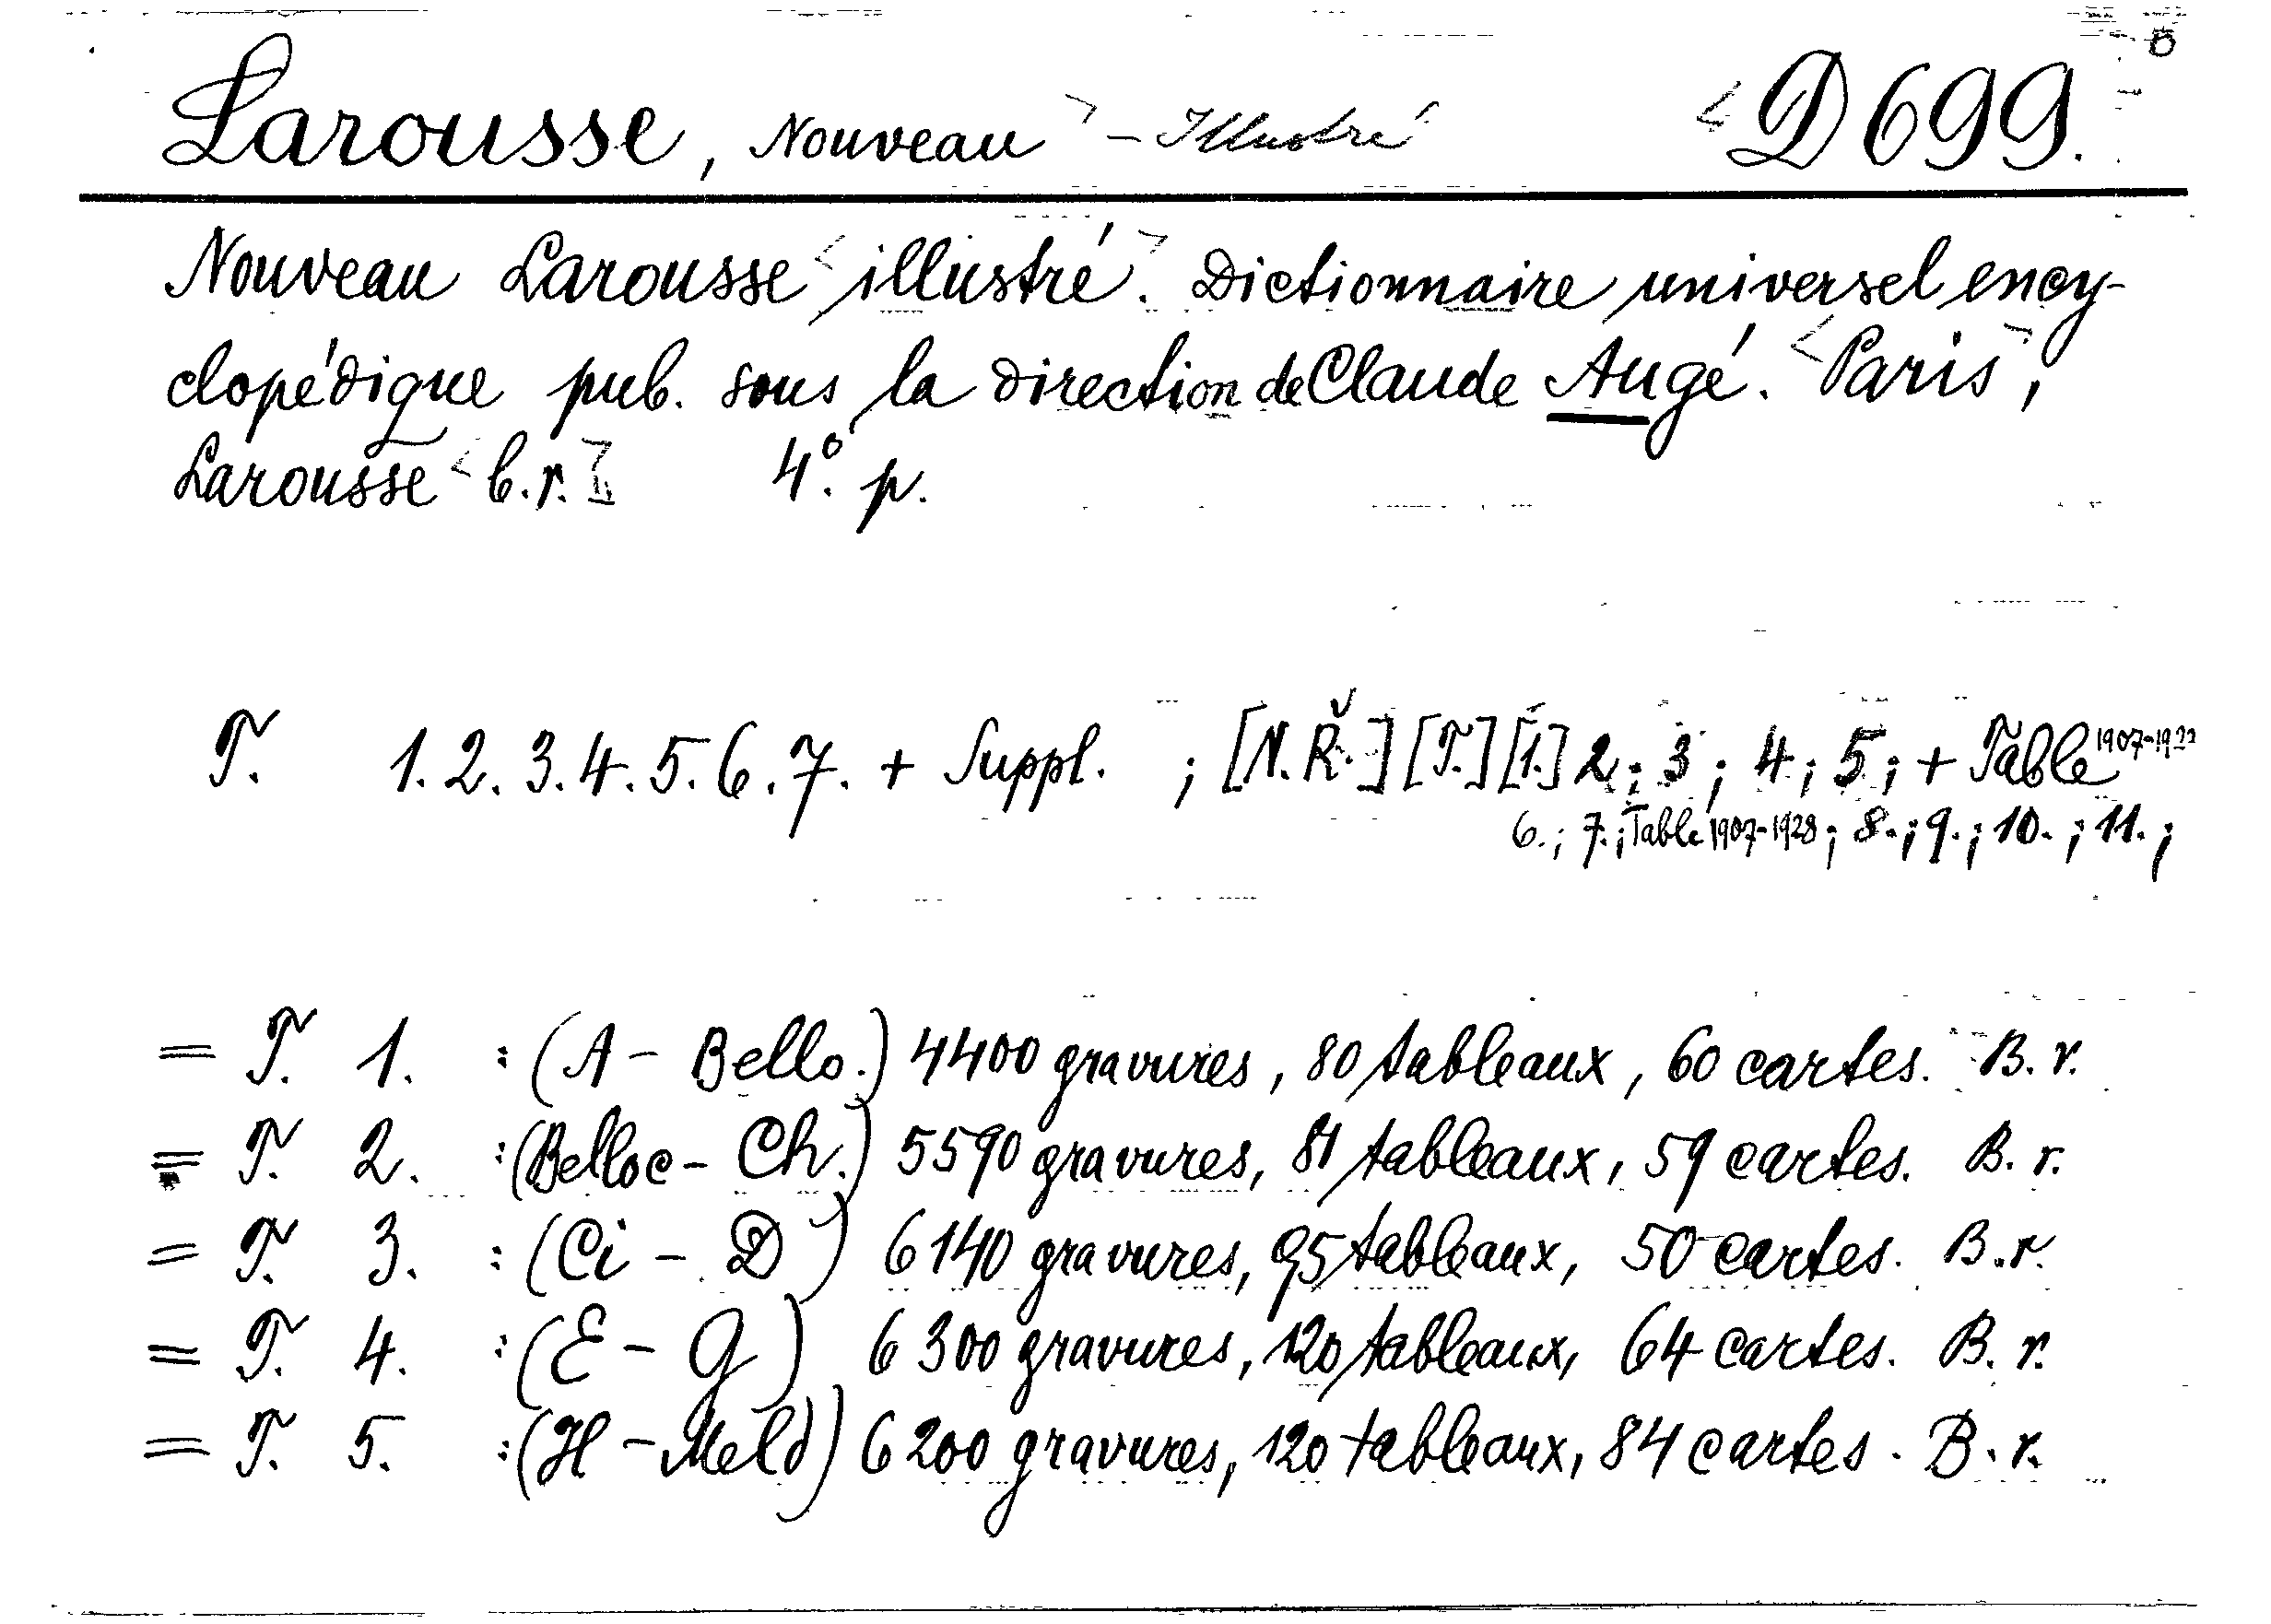 Larousse, Nouveau - Illustré D 699.
Nouveau Larousse illustré. Dictionnaire universel ency-
clopédique pub. sous la direction de Claude Augé. Paris,
Larousse b.r. 4°. p.
T. 1. 2. 3. 4. 5. 6. 7. + Suppl. ; [N.Ř.] [T.] [1.] 2.; 3; 4; 5; + Table 1907-1922
6.; 7.; Table 1907-1928; 8.; 9.; 10.; 11.;
= T. 1. : (A - Bello.) 4400 gravures, 80 tableaux, 60 cartes. B. r.
= T. 2. : (Belloc - Ch.) 5590 gravures, 81 tableaux, 59 cartes. B. r.
= T. 3. : (Ci - D) 6140 gravures, 95 tableaux, 50 cartes. B. r.
= T. 4. : (E - G) 6300 gravures, 120 tableaux, 64 cartes. B. r.
= T. 5. : (H - Meld) 6200 gravures, 120 tableaux, 84 cartes. B. r.